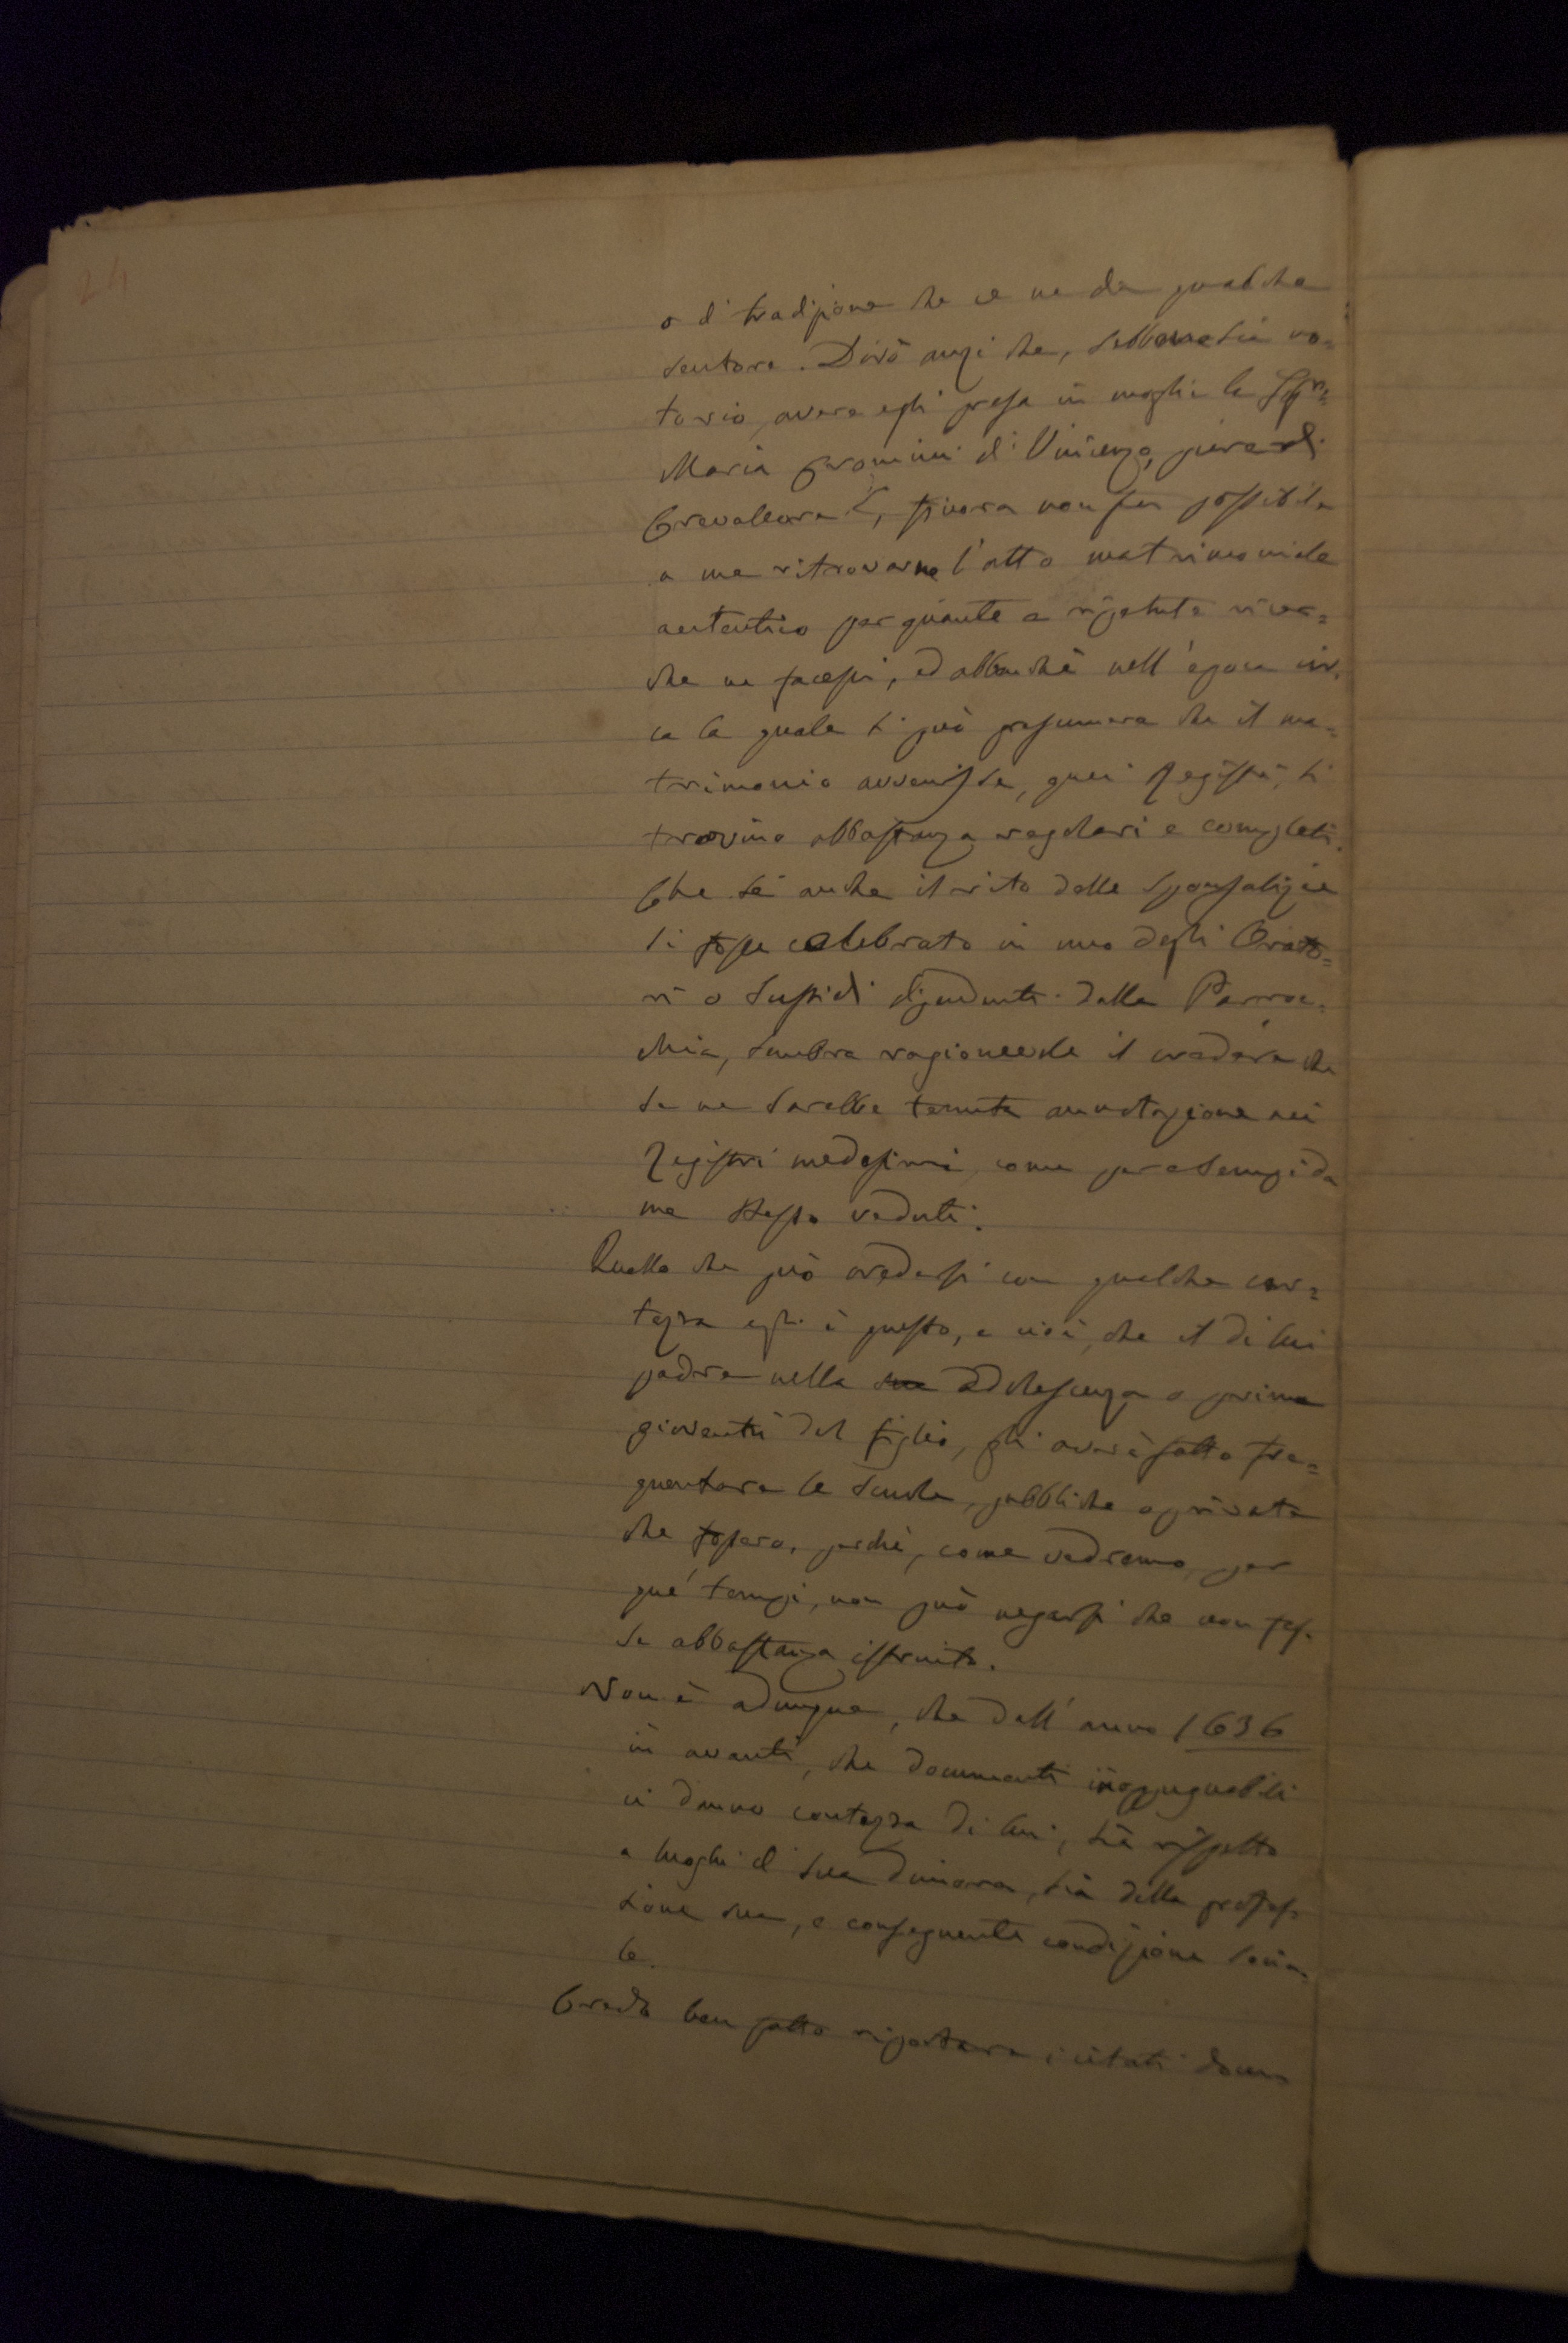 24
o di tradizione che ce ne dà qualche
sentore. Dirò anzi che, sebbene sia no=
torio, avere egli presa in moglie la Sigra
Maria di Vincenzo, pure di
Crevalcore, finora non fu possibile
a me ritrovarne l'atto matrimoniale
autentico per quante e ripetute ricer=
che ne facessi, ed abbenchè nell'epoca cir=
ca la quale si può presumere che il ma=
trimonio avvenisse, quei Registri, si
trovino abbastanza regolari e completi.
Che se anche il rito delle sponsalizie
si fosse celebrato in uno degli Orato=
rî o Sussidi dipendenti dalla Parroc=
chia, sembra ragionevole il credere che
se ne sarebbe tenuta annotazione nei
Registri medesimi, come per esempi da
me stesso veduti.
Quello che può credersi con qualche cer=
tezza egli è questo, e cioè, che il di lui
padre nella sua adolescenza o prima
gioventù del figlio, gli avere fatto fre=
quentare le scuole, pubbliche o private
che fossero, perchè, come vedremo, per
que' tempi, non può negarsi che non fos=
se abbastanza istruito.
Non è adunque, che dall'anno 1636
in avanti, che documenti inoppugnabili
ci danno contezza di lui, sia rispetto
a luoghi di sua dimora, sia della profes=
sione sua, e conseguente condizione socia=
le.
Credo ben fatto riportare i citati docu=